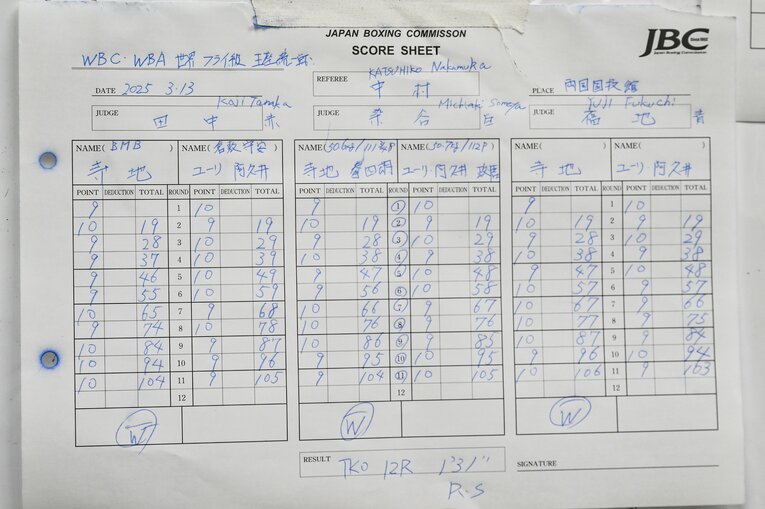 JAPAN BOXING COMMISSON
SCORE SHEET
JBC
Japan Boxing Commission
WBC・WBA 世界 フライ級 王座統一戦
DATE 2025 3.13
REFEREE KATSUHIKO Nakamura
中村
PLACE 両国国技館
JUDGE Koji Tanaka
田中 赤
JUDGE Michiaki Someya
染谷 白
JUDGE Yuji Fukuchi
福地 青
NAME( BMB ) NAME( 倉敷守安 ) NAME( 50.6kg/111 ) NAME( 50.7kg/112P ) NAME( ) NAME( )
寺地 ユーリ 阿久井 寺地 拳四朗 ユーリ 阿久井 政悟 寺地 ユーリ 阿久井
POINT DEDUCTION TOTAL ROUND POINT DEDUCTION TOTAL POINT DEDUCTION TOTAL ROUND POINT DEDUCTION TOTAL POINT DEDUCTION TOTAL ROUND POINT DEDUCTION TOTAL
9 1 10 9 1 10 9 1 10
10 19 2 9 19 10 19 2 9 19 10 19 2 9 19
9 28 3 10 29 9 28 3 10 29 9 28 3 10 29
9 37 4 10 39 10 38 4 9 38 10 38 4 9 38
9 46 5 10 49 9 47 5 10 48 9 47 5 10 48
9 55 6 10 59 9 56 6 10 58 10 57 6 9 57
10 65 7 9 68 10 66 7 9 67 10 67 7 9 66
9 74 8 10 78 10 76 8 9 76 10 77 8 9 75
10 84 9 9 87 10 86 9 9 85 10 87 9 9 84
10 94 10 9 96 9 95 10 10 95 9 96 10 10 94
10 104 11 9 105 9 104 11 10 105 10 106 11 9 103
12 12 12
W W W
RESULT TKO 12R 1'31"
R.S
SIGNATURE